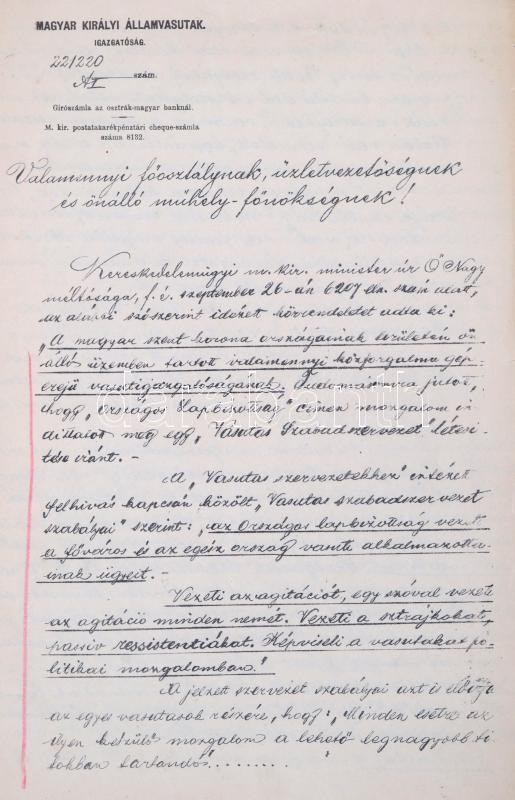 MAGYAR KIRÁLYI ÁLLAMVASUTAK.
IGAZGATÓSÁG.
221220
AI szám.
Girószámla az osztrák-magyar banknál.
M. kir. postatakarékpénztári cheque-számla
száma 8132.
Valamennyi főosztálynak, üzletvezetőségnek
és önálló műhely-főnökségnek!
Kereskedelemügyi m. kir. minister úr Ő Nagy
méltósága, f. é. szeptember 26-án 6207 eln. szám alatt,
az alábbi szószerint idézett körrendeletet adta ki:
„A magyar szent korona országainak területén ön
álló üzemben tartott valamennyi közforgalmú gőz
erejű vasútigazgatóságának. Tudomásomra jutott,
hogy „Országos Lapbizottság" címen mozgalom in
díttatott meg egy „Vasutas Szabadszervezet létesí-
tése iránt. -
A „Vasutas szervezetekhez" intézett
felhívás kapcsán közölt „Vasutas szabadszervezet
szabályai" szerint: „az Országos lapbizottság vezeti
a főváros és az egész ország vasúti alkalmazotta-
inak ügyeit. -
Vezeti az agitációt, egy szóval vezeti
az agitáció minden nemét. Vezeti a sztrájkokat,
passiv ressistentiákat. Képviseli a vasutakat po-
litikai mozgalomban."
A jelzett szervezet szabályai azt is előírja
az egyes vasutasok részére, hogy: „Minden esetre az
ilyen készülő mozgalom a lehető legnagyobb ti
tokban tartandó.........
darabanth